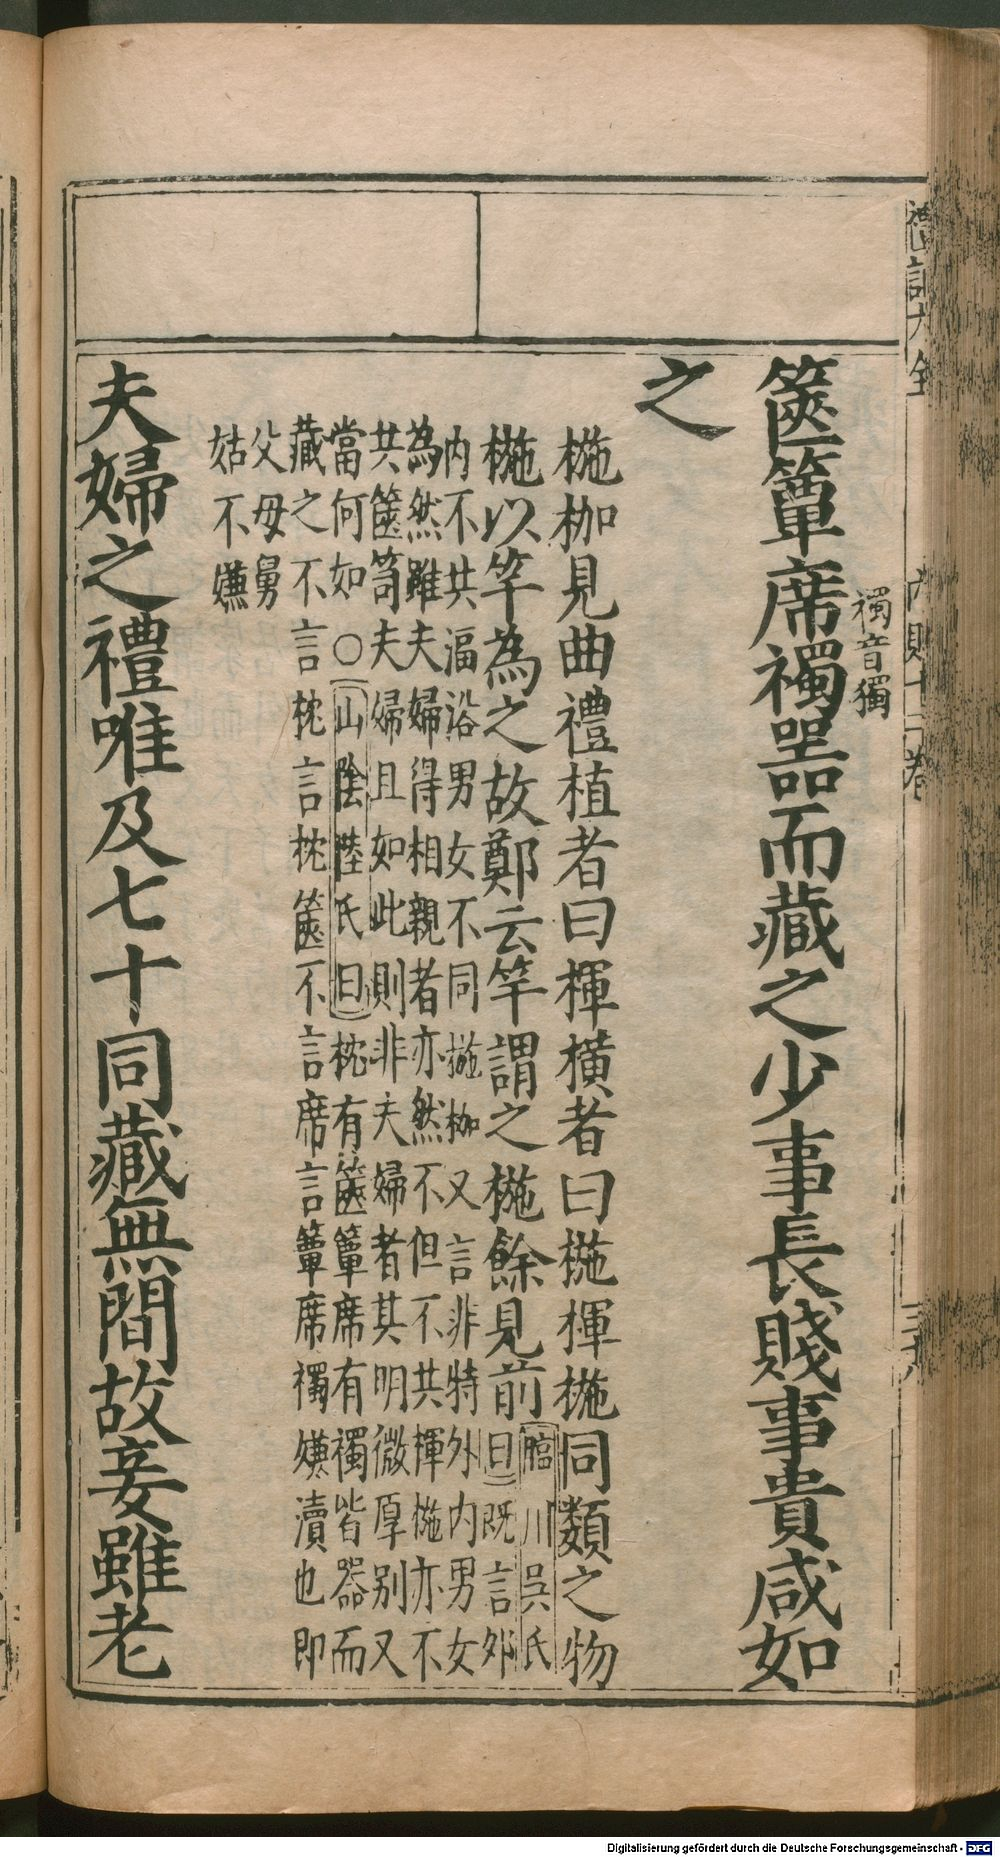 禮記大全
內則十二卷
三十八
襡音獨
篋簟席襡器而藏之少事長賤事貴咸如
之
椸枷見曲禮植者曰楎橫者曰椸楎椸同類之物
椸以竿為之故鄭云竿謂之椸餘見前
臨川吳氏
曰既言外
內不共湢浴男女不同椸枷又言非特外內男女
為然雖夫婦得相親者亦然不但不共楎椸亦不
共篋笥夫婦且如此則非夫婦者其明微厚別又
當何如○山陰陸氏曰枕有篋簟席有襡皆器而
藏之不言枕言枕篋不言席言簟席襡嫌瀆也即
父母舅
姑不嫌
夫婦之禮唯及七十同藏無間故妾雖老
Digitalisierung gefördert durch die Deutsche Forschungsgemeinschaft - DFG